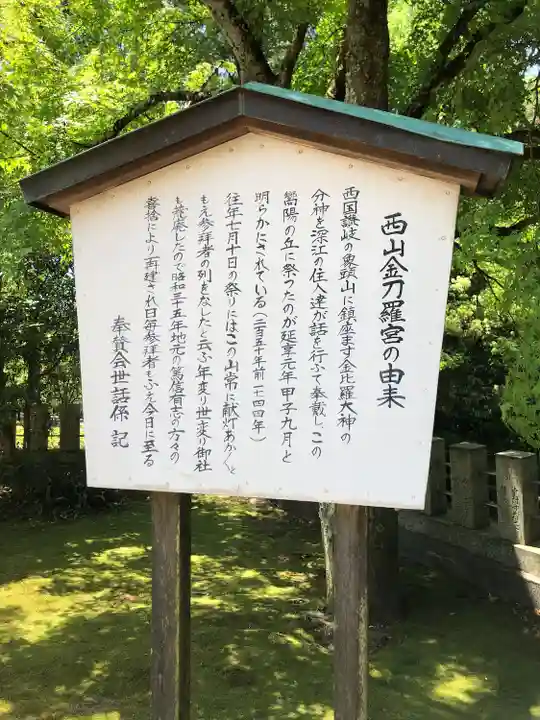 西山金刀羅宮の由来
西国讃岐の象頭山に鎮座ます金比羅大神の
分神を深江の住人達が話を行ふて奉戴し、この
嵩陽の丘に祭つたのが延享元年甲子九月と
明らかにされている(二百五十年前一七四四年)
往年七月十日の祭りにはこの山常に献灯あかあかと
もえ参拜者の列をなしたと云ふ年変り世変り御社
も荒廃したので昭和三十五年地元の篤信有志の方々の
喜捨により再建され日毎参拜者もふえ今日に至る
奉賛会世話係 記